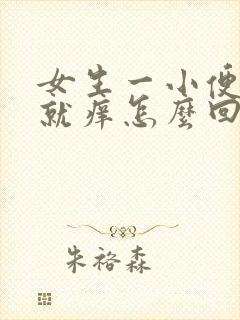 女生一小便
就痒怎麼回
朱裕森